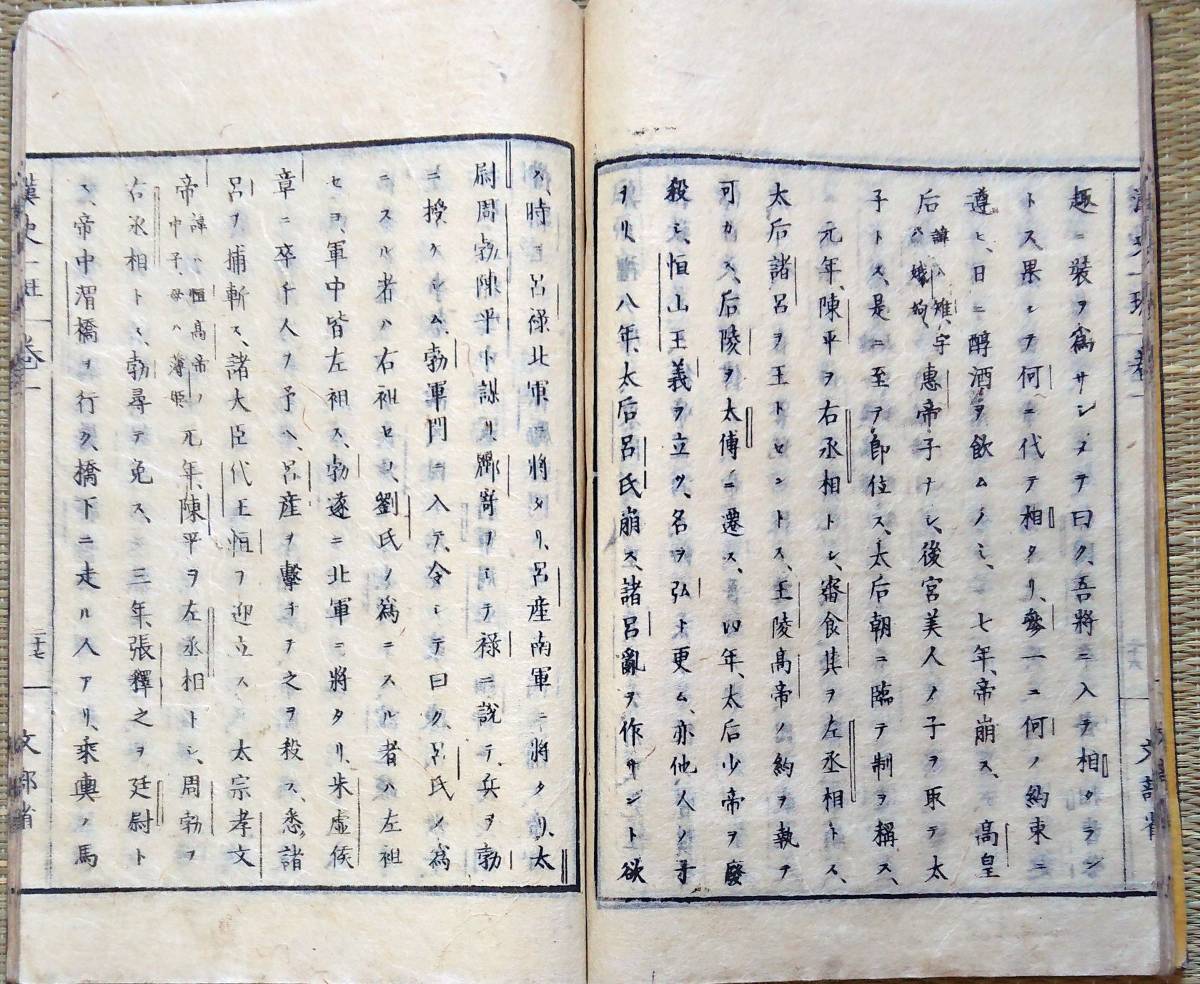 趣ニ装ヲ爲サシメテ曰ク、吾將ニ入テ相タラン
トス、果シテ何ニ代テ相タリ、參一ニ何ノ約束ニ
遵ヒ、日ニ醇酒ヲ飲ムノミ、七年、帝崩ス、高皇
后諱ハ雉、字ハ娥姁惠帝子ナシ、後宮美人ノ子ヲ取テ太
子トス、是ニ至テ即位ス、太后朝ニ臨テ制ヲ稱ス、
元年、陳平ヲ右丞相トシ、審食其ヲ左丞相トス、
太后諸呂ヲ王トセントス、王陵高帝ノ約ヲ執テ
可カス、后陵ヲ太傅ニ遷ス、四年、太后少帝ヲ廢
殺シ、恒山王義ヲ立ツ、名ヲ弘ト更ム、亦他人ノ子
ヲリ、八年、太后呂氏崩ス、諸呂亂ヲ作サント欲
ス、時ニ呂祿北軍ニ將タリ、呂産南軍ニ將タリ、太
尉周勃陳平ト謀リ、酈寄ヲシテ祿ニ説テ、兵ヲ勃
ニ授ケシム、勃軍門ニ入テ、令シテ曰ク、呂氏ノ爲
ニスル者ハ右袒セヨ、劉氏ノ爲ニスル者ハ左袒
セヨ、軍中皆左袒ス、勃遂ニ北軍ニ將タリ、朱虚侯
章ニ卒千人ヲ予ヘ、呂産ヲ擊チテ之ヲ殺ス、悉諸
呂ヲ捕斬ス、諸大臣代王恒ヲ迎立ス 太宗孝文
帝諱ハ恒高帝ノ中子、母ハ薄姬元年、陳平ヲ左丞相トシ、周勃ヲ
右丞相トス、勃尋テ免ス、三年、張釋之ヲ廷尉ト
ス、帝中渭橋ヲ行ク、橋下ニ走ル人アリ、乘輿ノ馬
漢史一班 卷一 二十七 文部省